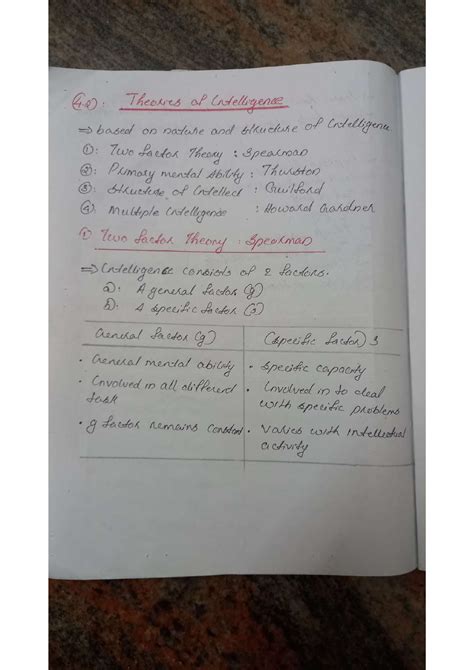 4.2): Theories of Intelligence
⇒ based on nature and structure of Intelligence
①: Two factor Theory : Spearman
②: Primary mental Ability : Thurston
③: Structure of Intellect : Guilford
④: Multiple Intelligence : Howard Gardner
① Two factor Theory : Spearman
⇒ Intelligence consists of 2 factors.
a): A general factor (g)
b): A specific factor (s)
General factor (g)
(specific factor) s
• General mental ability
• Specific capacity
• Involved in all different
task
• Involved in to deal
with specific problems
• g factor remains constant
• Varies with intellectual
activity